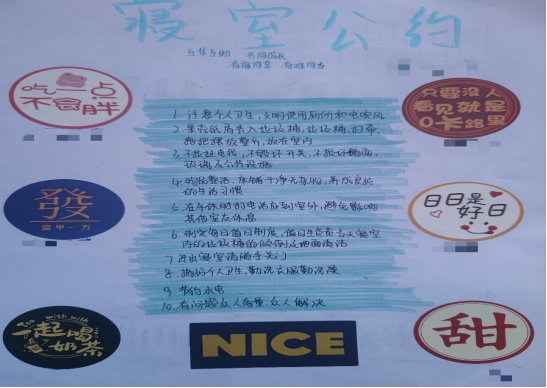 寝室公约
互帮互助 共同成长
有福同享 有难同当
吃一点
不会胖
只要没人
看见就是
0卡路里
1. 注意个人卫生,文明使用厕所和电吹风
2. 果壳纸屑丢入垃圾桶,垃圾桶,扫帚,
放在室内
3. 不乱拉电线,不毁坏开关,不毁坏墙面,
玻璃及公共设施
4. 物品整洁,床铺干净无杂物,养成良好
的生活习惯
5. 在午休时打电话应到室外,避免影响
其他室友休息
6. 制定每日值日制度,值日生负责当天寝室
内的垃圾桶的倾倒及地面清洁
7. 进出寝室请随手关门
8. 搞好个人卫生,勤洗衣服勤洗澡
9. 节约水电
10. 有问题众人商量,众人解决
發
富甲一方
日日是
好日
一起喝
奶茶
NICE
甜